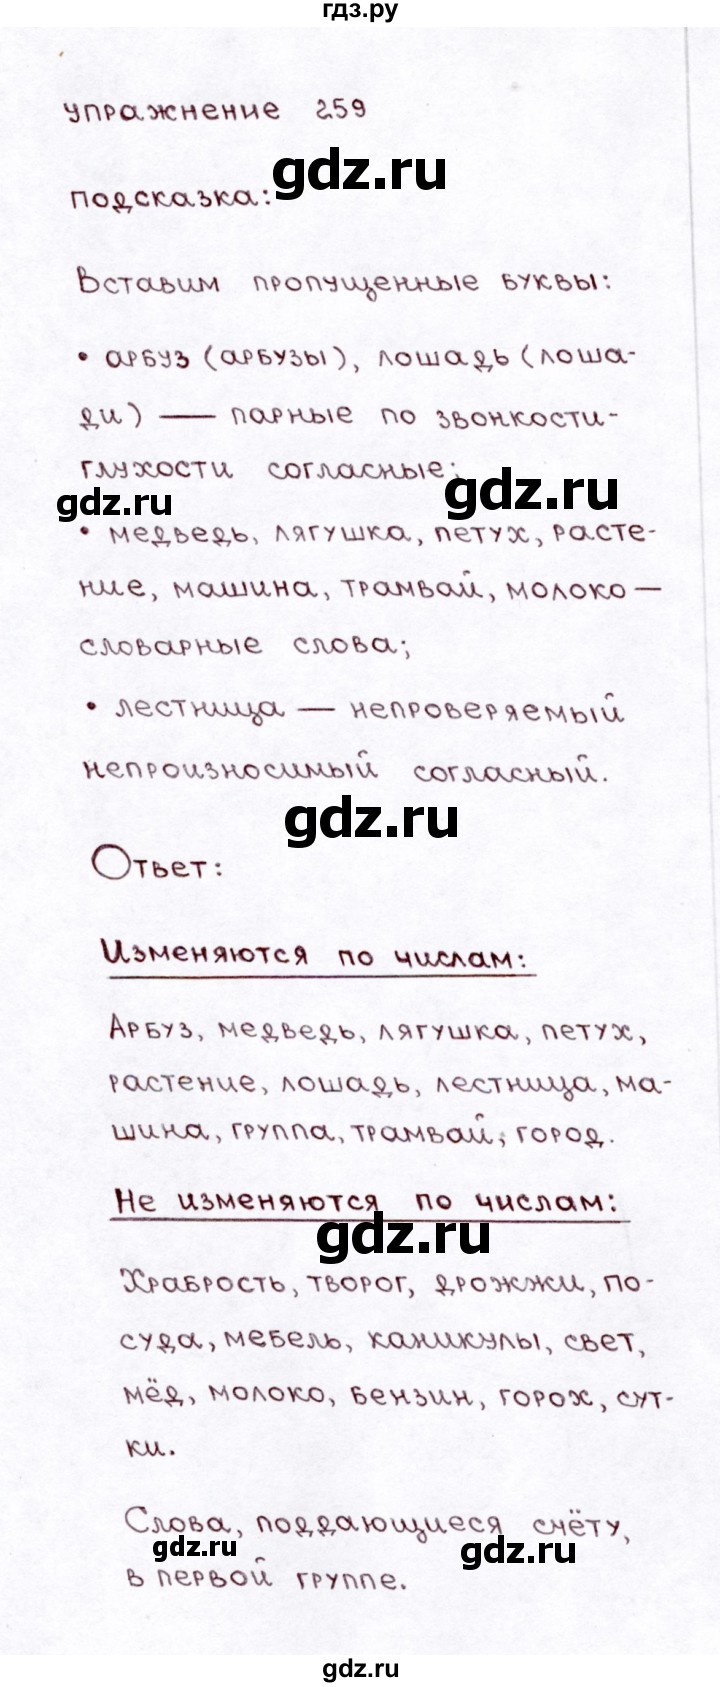 гдз.ру
упражнение 259
gdz.ru
подсказка:
Вставим пропущенные буквы:
• арбуз (арбузы), лошадь (лоша-
ди) — парные по звонкости-
глухости согласные;
gdz.ru
gdz.ru
• медведь, лягушка, петух, расте-
ние, машина, трамвай, молоко —
словарные слова;
• лестница — непроверяемый
непроизносимый согласный.
gdz.ru
Ответ:
Изменяются по числам:
Арбуз, медведь, лягушка, петух,
растение, лошадь, лестница, ма-
шина, группа, трамвай, город.
Не изменяются по числам:
gdz.ru
Храбрость, творог, дрожжи, по-
суда, мебель, каникулы, свет,
мёд, молоко, бензин, горох, сут-
ки.
Слова, поддающиеся счёту,
gdz.ru
gdz.ru
в первой группе.
gdz.ru